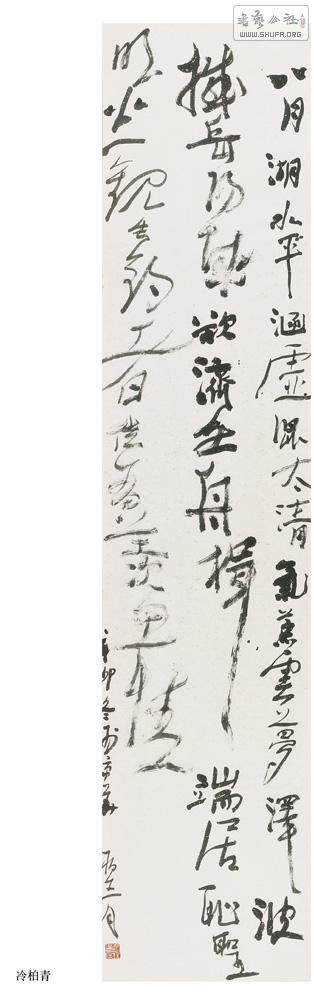 書藝公社
WWW.SHUFA.ORG
八月湖水平涵虛混太清氣蒸雲夢澤波
撼岳陽城欲濟無舟楫端居恥聖
明坐觀垂釣者徒有羨魚情
辛卯冬於京華
冷柏青